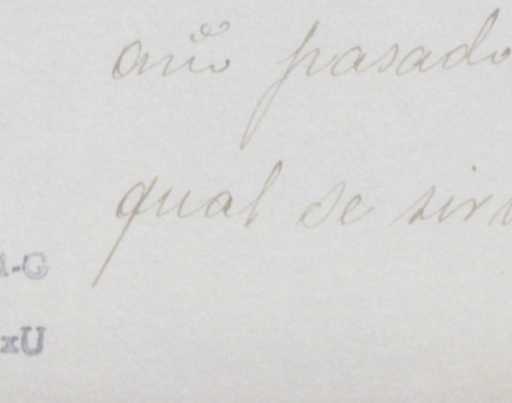 año pasado
qual se sirv
-G
xU